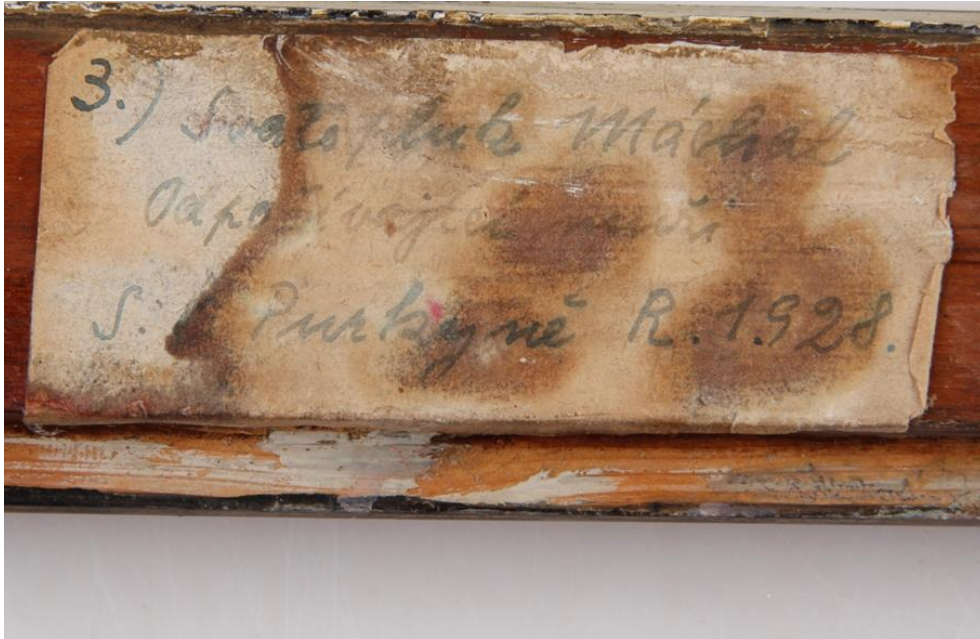 3.) Svatopluk Máchal
Odpočívající muži
S. Purkyně R. 1.928.